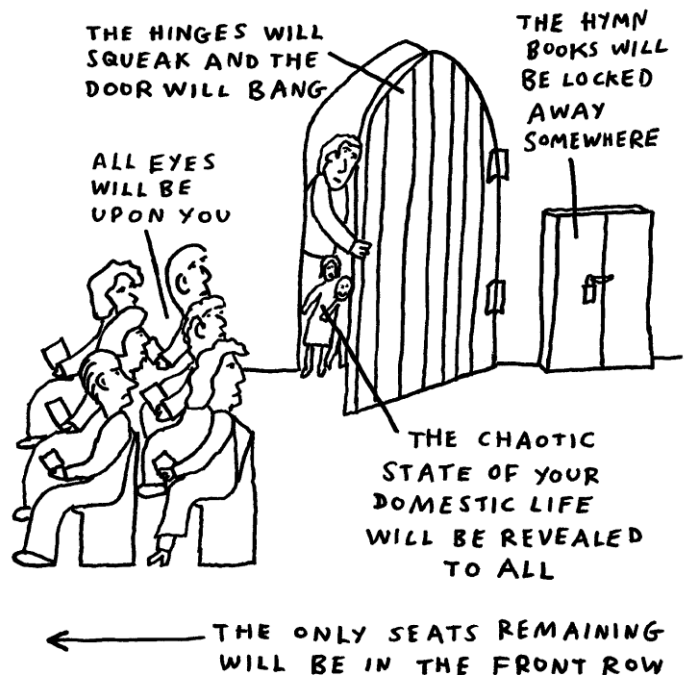 THE HINGES WILL
SQUEAK AND THE
DOOR WILL BANG
THE HYMN
BOOKS WILL
BE LOCKED
AWAY
SOMEWHERE
ALL EYES
WILL BE
UPON YOU
THE CHAOTIC
STATE OF YOUR
DOMESTIC LIFE
WILL BE REVEALED
TO ALL
THE ONLY SEATS REMAINING
WILL BE IN THE FRONT ROW